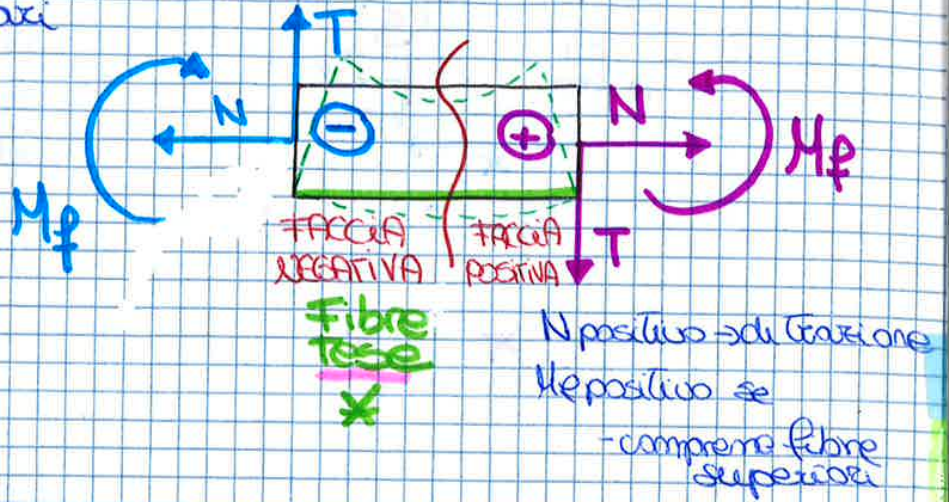 T
N
N
Mf
Mf
-
+
T
FACCIA
NEGATIVA
FACCIA
POSITIVA
Fibre
tese
*
N positivo → di trazione
Mf positivo se
- comprime fibre
superiori